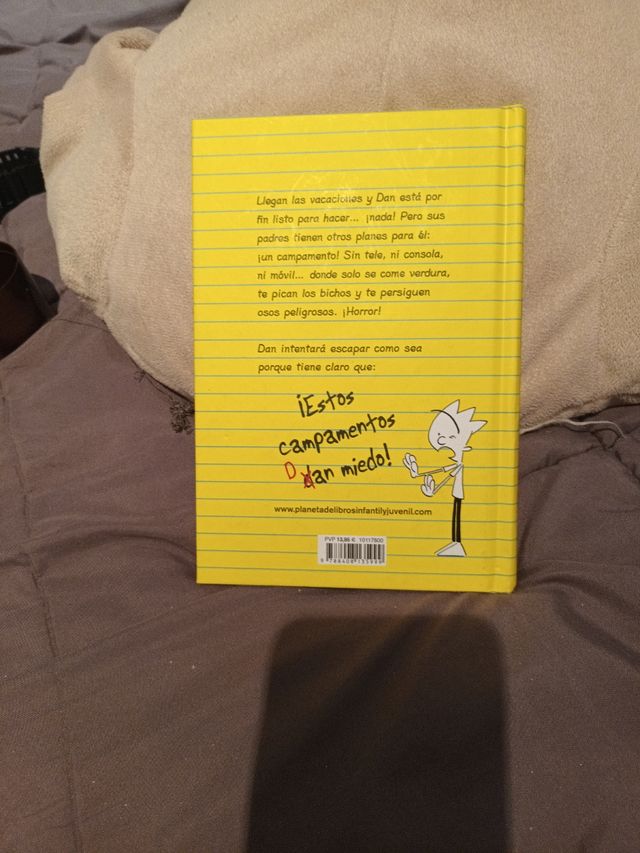 Llegan las vacaciones y Dan está por
fin listo para hacer... ¡nada! Pero sus
padres tienen otros planes para él:
¡un campamento! Sin tele, ni consola,
ni móvil... donde solo se come verdura,
te pican los bichos y te persiguen
osos peligrosos. ¡Horror!
Dan intentará escapar como sea
porque tiene claro que:
¡Estos
campamentos
Ddan miedo!
www.planetadelibrosinfantilyjuvenil.com
PVP 13,95 € 10117500
9 788408 135999